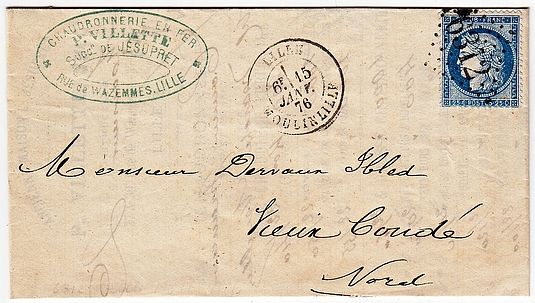 CHAUDRONNERIE EN FER
P. VILLETTE
Succr DE JÉSUPRET
RUE de WAZEMMES. LILLE
LILLE
6E 15
JANV.
76
MOULINLILLE
FRANC
6312
25 C
25 C
Monsieur Dervaux Ibled
Vieux Condé
Nord